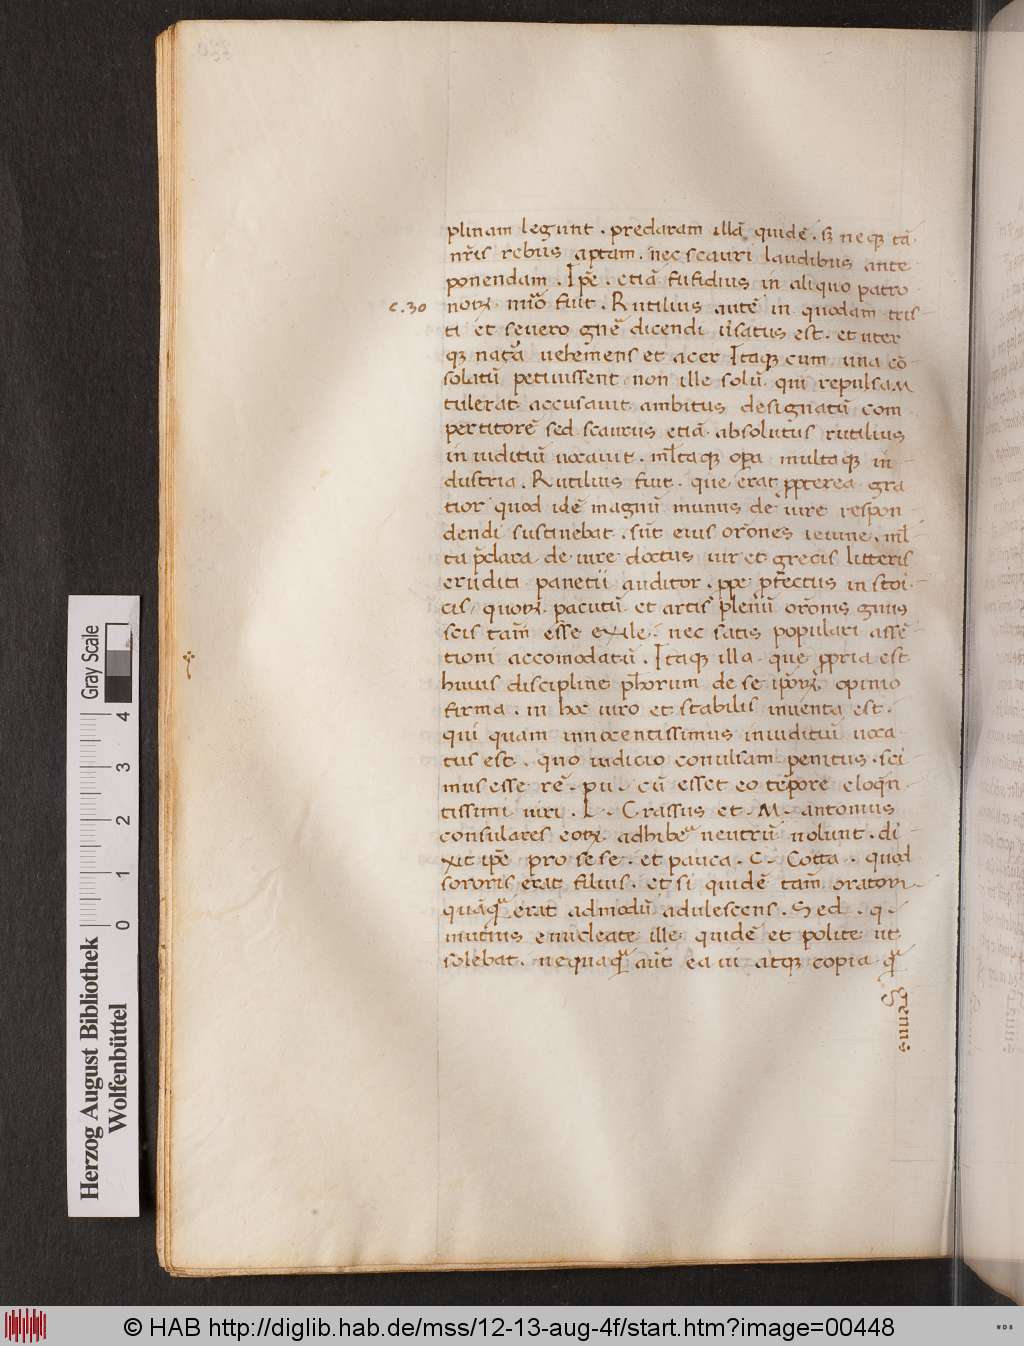 plinam legunt . predaram illā quidē . sꝫ neqꝫ tā
nr̄is rebus aptam . nec scauri laudibus ante
ponendam . Ip̄e . etiā fufidius in aliquo patro
c.30 norꝝ nūo fuit . Rutilius autē in quodam tris
ti et seuero gn̄e dicendi ūsatus est . et uter
qꝫ natā uehemens et acer Itaqꝫ cum una cō
solatū petiuissent non ille solū qui repulsam
tulerat accusauit ambitus designatū com
pertitorē sed scaurus etiā absolutus rutilius
in iuditiū uocauit . ml̄taqꝫ opa multaqꝫ in
dustria . Rutilius fuit . que erat ꝓpterea gra
tior quod idē magnū munus de iure respon
dendi sustinebat . sūt eius orōnes ieiune . ml̄
ta p̄clara de iure doctus uir et grecis litteris
eruditi panetii auditor . ꝓpe pfectus in stoi
cis . quorꝝ pacutū et artis plenū orōnis genus
scis tam̄ esse exile . nec satis populari assē
tioni accomodatū . Itaqꝫ illa que ꝓpria est
huius discipline ph̄orum de se ip̄orꝝ opinio
firma . in hoc uiro et stabilis inuenta est .
qui quam innocentissimus iniuditiū uoca
tus est . quo iudicio conulsam penitus . sci
mus esse rē . pu . cū esset eo tēpore eloqn̄
tissimi uiri . L . Crassus et . M . antonius
consulares eorꝝ adhibe neutrū nolunt . di
xit ip̄e pro sese . et pauca . C . Cotta . quod
sororis erat filius . et si quidē tam̄ orator
quāqꝫ erat admodū adulescens . Sed . q .
mutius enucleate ille quidē et polite ut
solebat . nequaqꝫ aūt ea ui atqꝫ copia q
Genus
Herzog August Bibliothek
Wolfenbüttel
0 1 2 3 4
Gray Scale
© HAB http://diglib.hab.de/mss/12-13-aug-4f/start.htm?image=00448